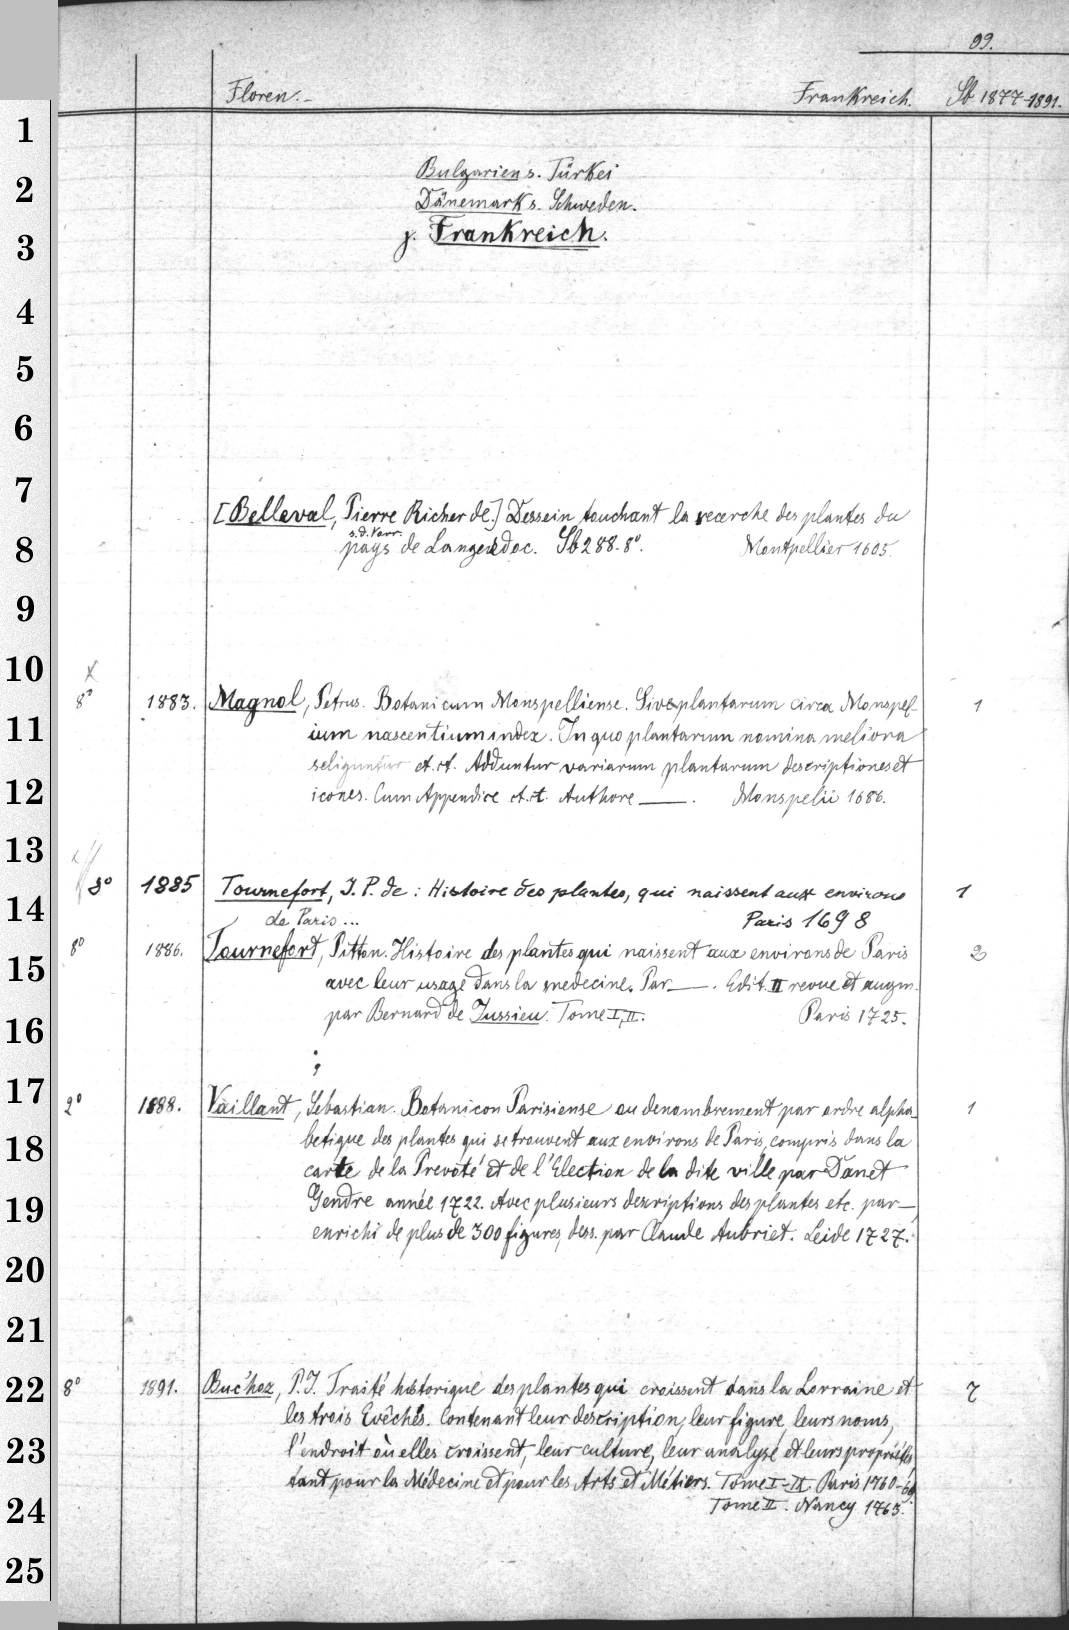 99.
Floren. Frankreich. Sb 1877-1891.
Bulgarien s. Türkei
Dänemark s. Schweden.
j. Frankreich.
[Belleval, Pierre Richer de.] Dessein touchant la recerche des plantes du
s. d. Verr.
pays de Langedoc. Sb 288. 8°. Montpellier 1605.
x
8° 1883. Magnol, Petrus. Botanicum Monspelliense. Sive plantarum circa Monspel- 1
ium nascentium index. In quo plantarum nomina meliora
seliguntur et. rt. Adduntur variarum plantarum descriptiones et
icones. Cum Appendice rt. rt. Authore —. Monspelii 1686.
8° 1885 Tournefort, J. P. de : Histoire des plantes, qui naissent aux environs 1
de Paris ... Paris 1698
8° 1886. Tournefort, Pitton. Histoire des plantes qui naissent aux environs de Paris 2
avec leur usage dans la medecine. Par —. Edit. II revue et augm.
par Bernard de Jussieu. Tome I, II. Paris 1725.
2° 1888. Vaillant, Sebastian. Botanicon Parisiense ou denombrement par ordre alpha- 1
betique des plantes qui se trouvent aux environs de Paris, compris dans la
carte de la Prevoté et de l'Election de la dite ville par Danet
Gendre année 1722. Avec plusieurs descriptions des plantes etc. par —,
enrichi de plus de 300 figures, dess. par Claude Aubriet. Leide 1727.
8° 1891. Buc'hoz, P. J. Traité historique des plantes qui croissent dans la Lorraine et 7
les trois Evêchés. Contenant leur description, leur figure, leurs noms,
l'endroit où elles croissent, leur culture, leur analyse et leurs propriétés
tant pour la Médecine et pour les Arts et Métiers. Tome I-IX. Paris 1760-69.
Tome II. Nancy 1763.
1
2
3
4
5
6
7
8
9
10
11
12
13
14
15
16
17
18
19
20
21
22
23
24
25